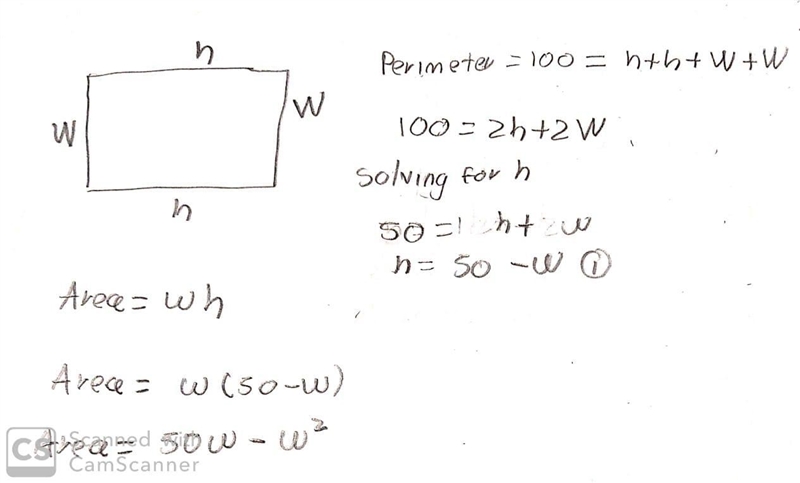 h
W
W
h
Perimeter = 100 = h+h+W+W
100 = 2h+2W
solving for h
50 = h+ w
h = 50 - w ①
Area = wh
Area = w(50-w)
Area = 50w - w²
CS Scanned with
CamScanner